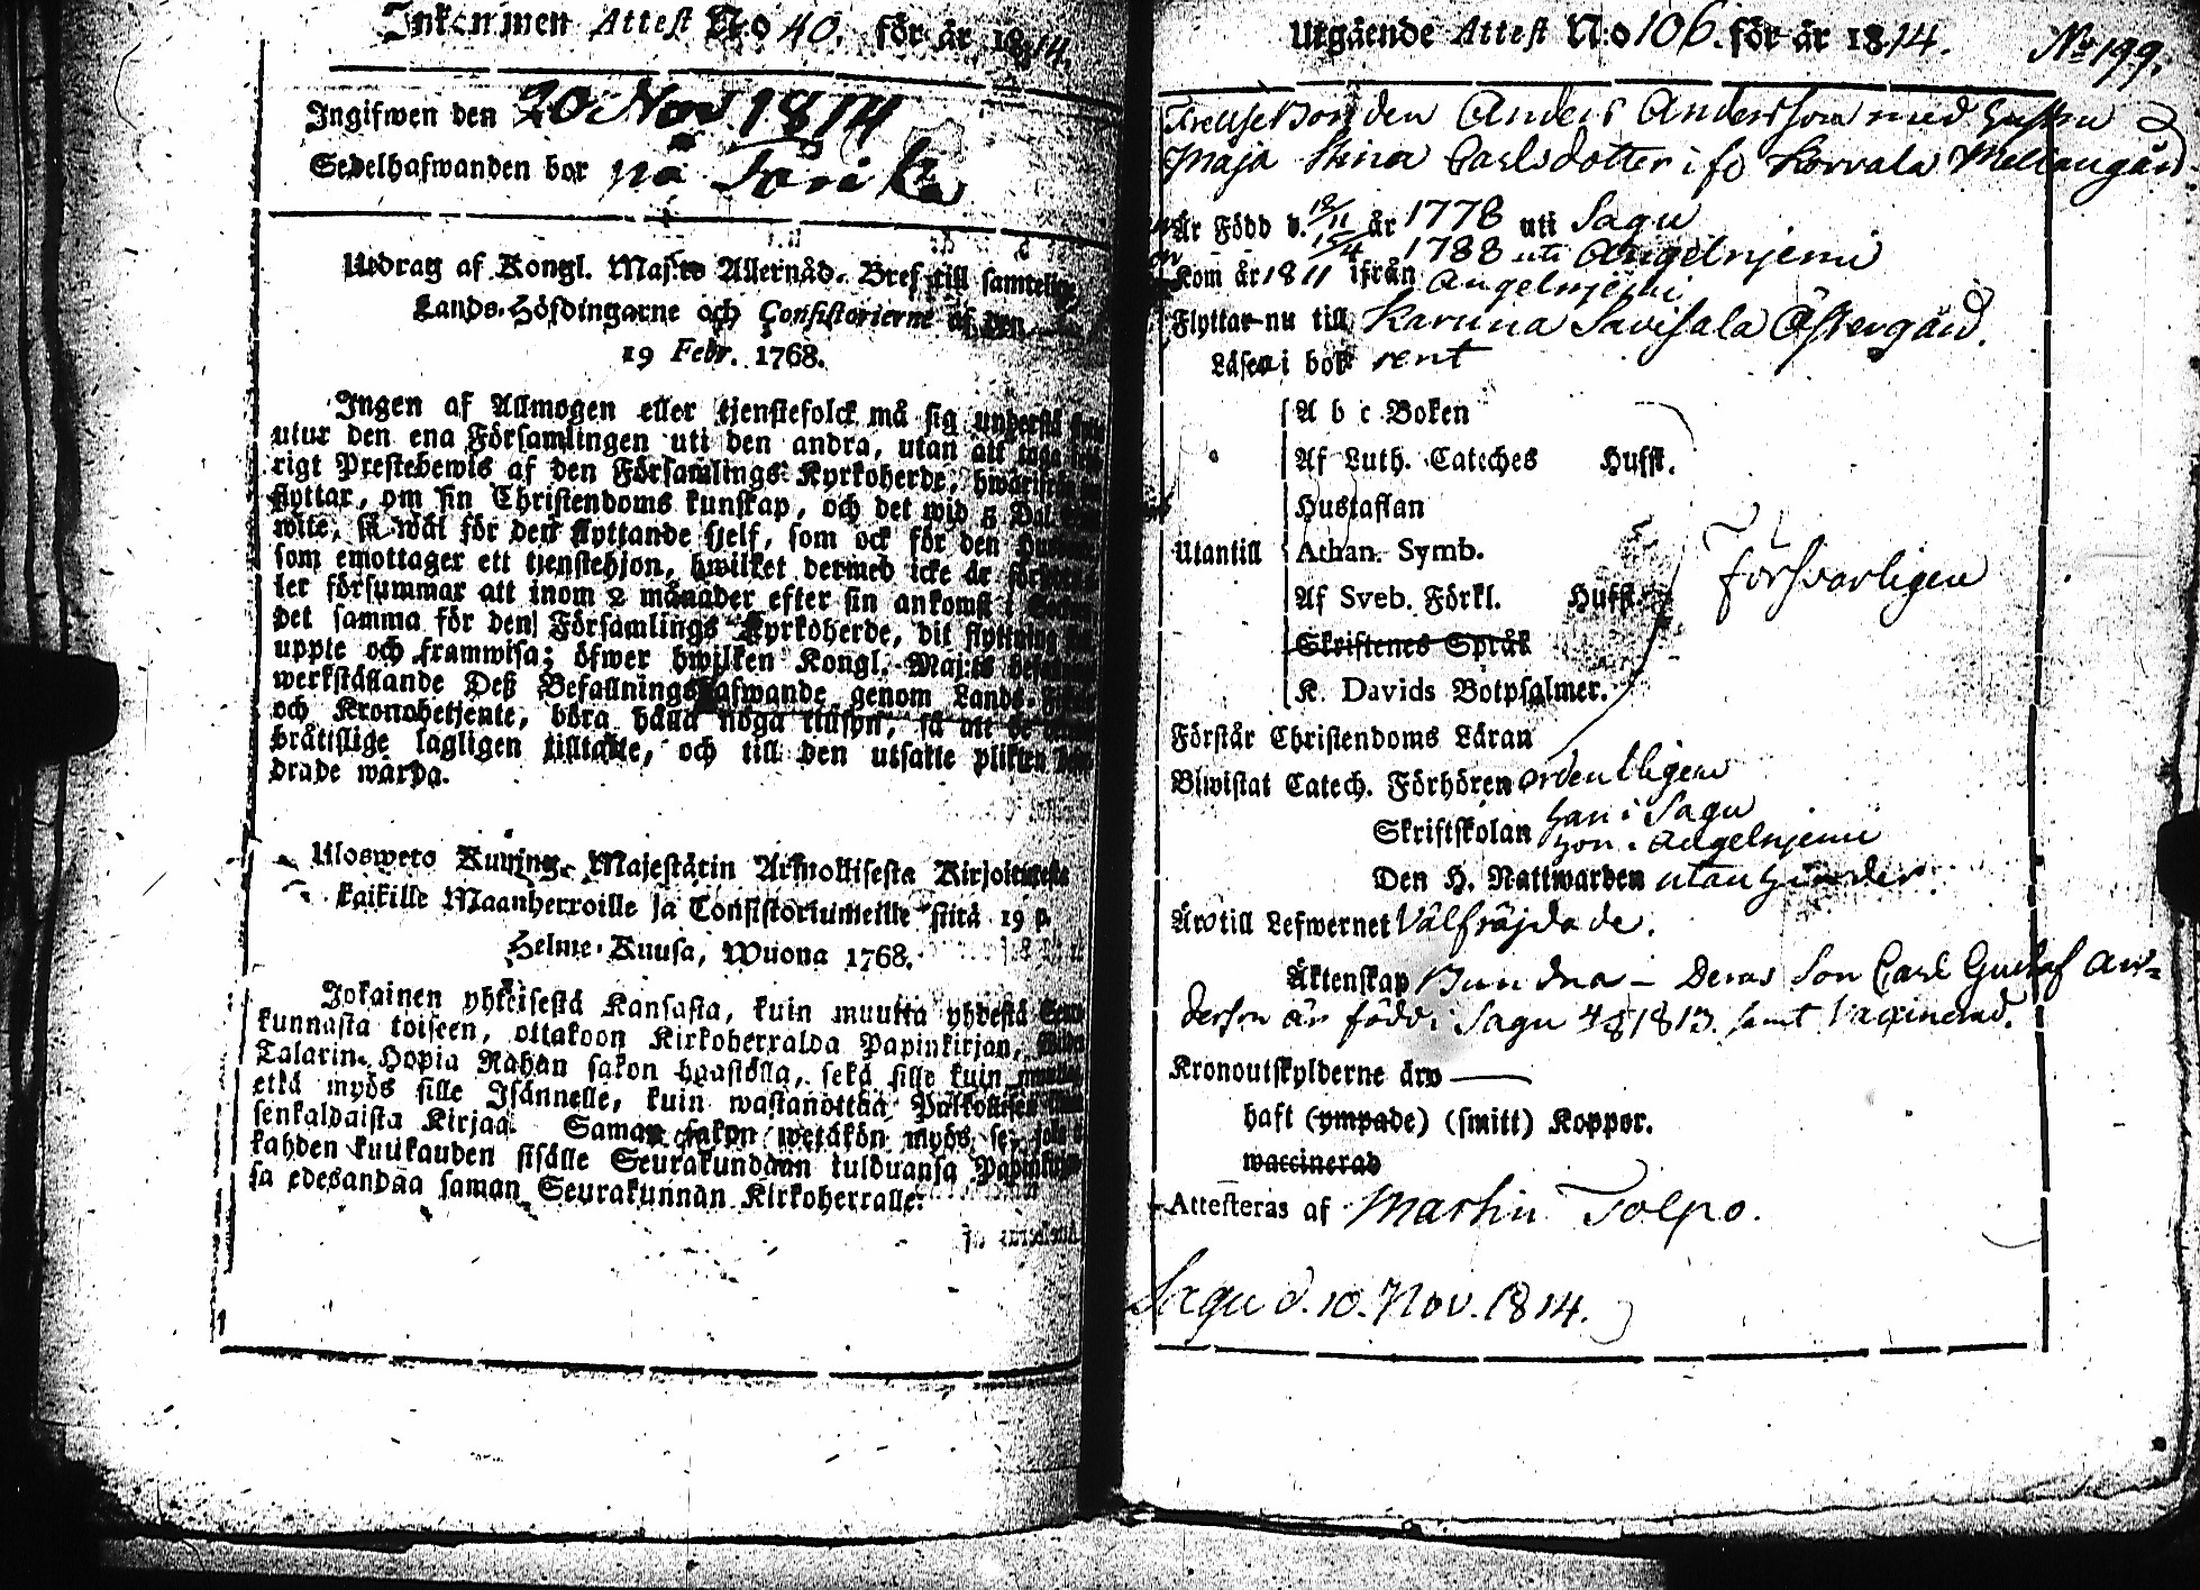 Inkommen Attest N:o 40. för år 1814.
Ingifwen den 20 Nov. 1814
Sedelhafwanden bor på
Utdrag af Kongl. Maj:ts Allernåd. Bref till samtelige
Lands-Höfdingarne och Consistorierne af den
19 Febr. 1768.
Ingen af Allmogen eller tjenstefolck må sig understå
utur den ena Församlingen uti den andra, utan att taga
rigt Prestebewis af den Församlings Kyrkoherde, hwarifrån
flyttar, om sin Christendoms kunskap, och det wid 5 Dal.
wite, så wäl för den flyttande sjelf, som ock för den
som emottager ett tjenstehjon, hwilket dermed icke är
ler försummar att inom 2 månader efter sin ankomst i
det samma för den Församlings Kyrkoherde, dit flyttning
uppte och framwisa; öfwer hwilken Kongl. Maj:ts
werkställande Deß Befallningshafwande genom Lands-
och Kronobetjente, böra hålla noga tillsyn, så att de
bråtislige lagligen tilltalte, och till den utsatte plikten
drade warda.
Ulosweto Kuning. Majestätin Armollisesta Kirjoituxesta
kaikille Maanherroille ja Consistoriumeille siitä 19 p.
Helme-Kuusa, Wuona 1768.
Jokainen yhteisestä Kansasta, kuin muutta yhdestä
kunnasta toiseen, ottakoon Kirkoherralda Papinkirjan,
Talarin Hopia Rahan sakon haastolla, sekä sille kuin
etkä myös sille Isännelle, kuin wastanottaa Palkollisen
senkaldaista Kirjaa. Saman sakon wetäkön myös se, joka
kahden kuukauden sisälle Seurakundaan tulduansa
sa edesandaa saman Seurakunnan Kirkoherralle.
Utgående Attest N:o 106. för år 1814. No 199.
FrelseBonden Anders Andersson med Hustru
Maja Stina Carlsdotter ifr Korvala Mellangård
Är Född d. 12/11 år 1778 uti Sagu
15/4 1788 uti Angelnjemi
Kom år 1811 ifrån Angelnjemi
Flyttar nu till Karuna Savisala Östergård.
Läsa i bok rent
A b c Boken
Af Luth. Cateches Hufst.
Hustaflan
Utantill Athan. Symb.
försvarligen
Af Sveb. Förkl. Hufst.
Skriftenes Språk
K. Davids Botpsalmer.
Förstår Christendoms Läran
Bliwistat Catech. Förhören ordentligen
Skriftskolan han i Sagu
hon i Angelnjemi
Den H. Nattwarden utan hinder.
Äro till Lefwernet Välfräjdade.
Äktenskap Bundna – Deras Son Carl Gustaf An=
derson är född i Sagu 4/8 1813. samt Vaccinerad.
Kronoutskylderne äro —
haft (ympade) (smitt) Koppor.
waccinerad
Attesteras af Martin Tolpo.
Sagu d. 10. Nov. 1814.